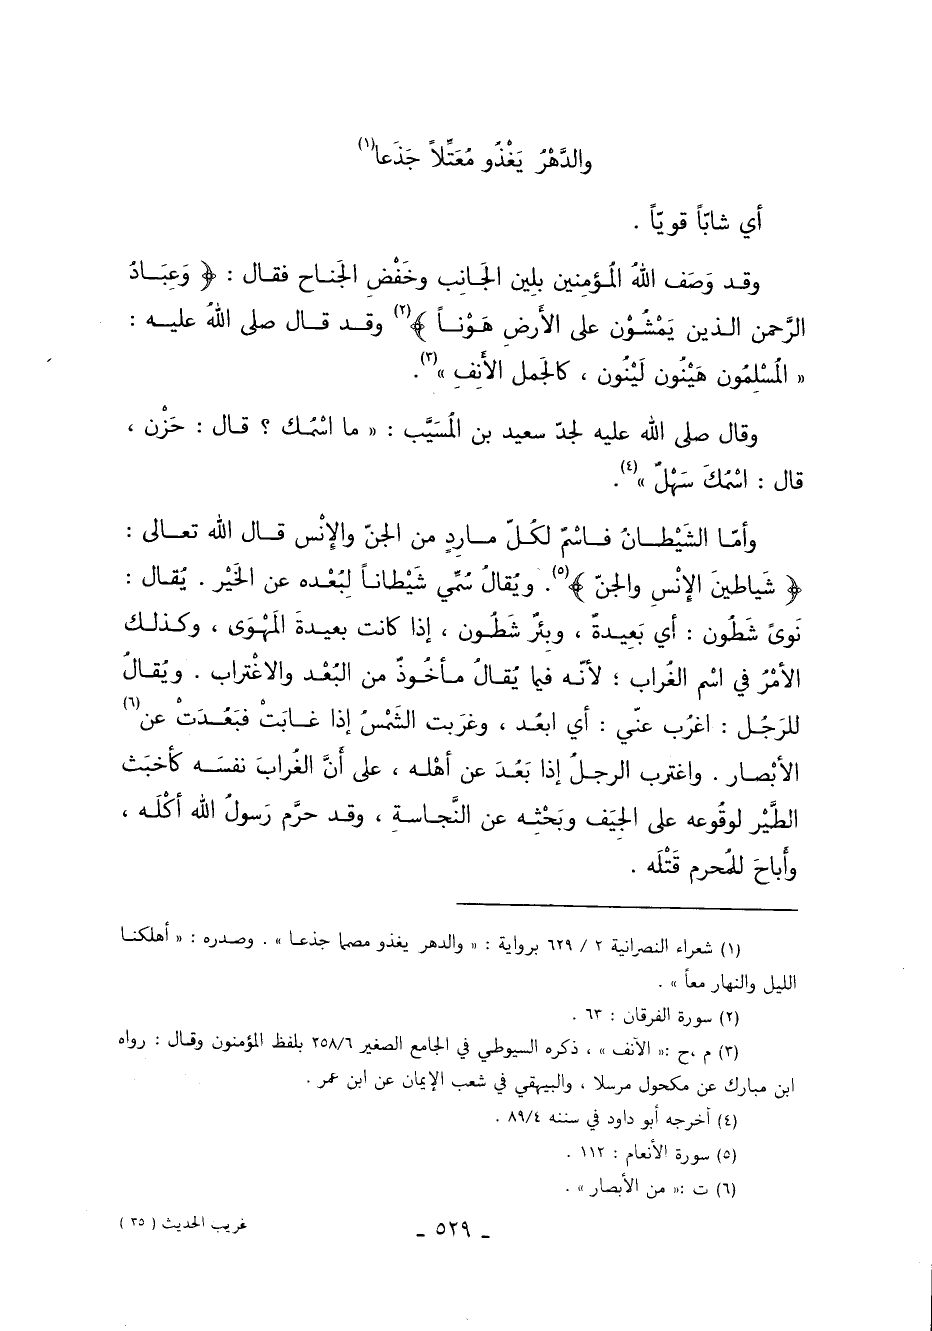 والدَّهْرُ يَغْذُو مُعَتَّلاً جَذَعا(١)
أي شابّاً قويّاً .
وقد وَصَف اللهُ المُؤمِنين بلين الجَانِب وخَفْضِ الجَناح فقال : ﴿ وَعِبَادُ
الرَّحمن الذين يَمْشُوْن على الأَرضِ هَوْناً ﴾(٢) وقد قال صلى اللهُ عليه :
« المُسْلِمُون هَيْنُون لَيْنُون ، كالجَمل الأَنِفِ »(٣).
وقال صلى الله عليه لجدّ سعيد بن المُسَيَّب : « ما اسْمُك ؟ قال : حَزْن ،
قال : اسْمُكَ سَهْلٌ »(٤).
وأمّا الشَيْطانُ فاسْم لكُلّ ماردٍ من الجنّ والإنْس قال الله تعالى :
﴿ شَياطينَ الإنْسِ والجنّ ﴾(٥). ويُقالُ سُمِّي شَيْطاناً لبُعْده عن الخَيْر . يُقال :
نَوىً شَطُون : أي بَعِيدةٌ ، وبئرٌ شَطُون ، إذا كانت بعيدةَ المَهْوَى ، وكذلك
الأمْرُ في اسْم الغُراب ؛ لأنّه فيما يُقالُ مأخُوذٌ من البُعْد والاغْتراب . ويُقالُ
للرَجُل : اغرُب عنّي : أي ابعُد ، وغرَبت الشَمْسُ إذا غابَتْ فبَعُدَتْ عن(٦)
الأبْصار . واغترب الرجلُ إذا بَعُدَ عن أهْله ، على أَنَّ الغُرابَ نفسَه كأخبَث
الطَّيْر لوقُوعه على الجِيَف وبَحْثه عن النَّجاسةِ ، وقد حرَّم رَسولُ الله أكْلَه ،
وأَباحَ للمُحرم قَتْلَه .
(١) شعراء النصرانية ٢ / ٦٢٩ برواية : « والدهر يغذو مصما جذعا » . وصدره : « أهلكنا
الليل والنهار معاً » .
(٢) سورة الفرقان : ٦٣ .
(٣) م ،ح :« الآنف » ، ذكره السيوطي في الجامع الصغير ٢٥٨/٦ بلفظ المؤمنون وقال : رواه
ابن مبارك عن مكحول مرسلا ، والبيهقي في شعب الإيمان عن ابن عمر .
(٤) أخرجه أبو داود في سننه ٨٩/٤ .
(٥) سورة الأنعام : ١١٢ .
(٦) ت :« من الأبصار » .
- ٥٢٩ -
غريب الحديث ( ٣٥ )